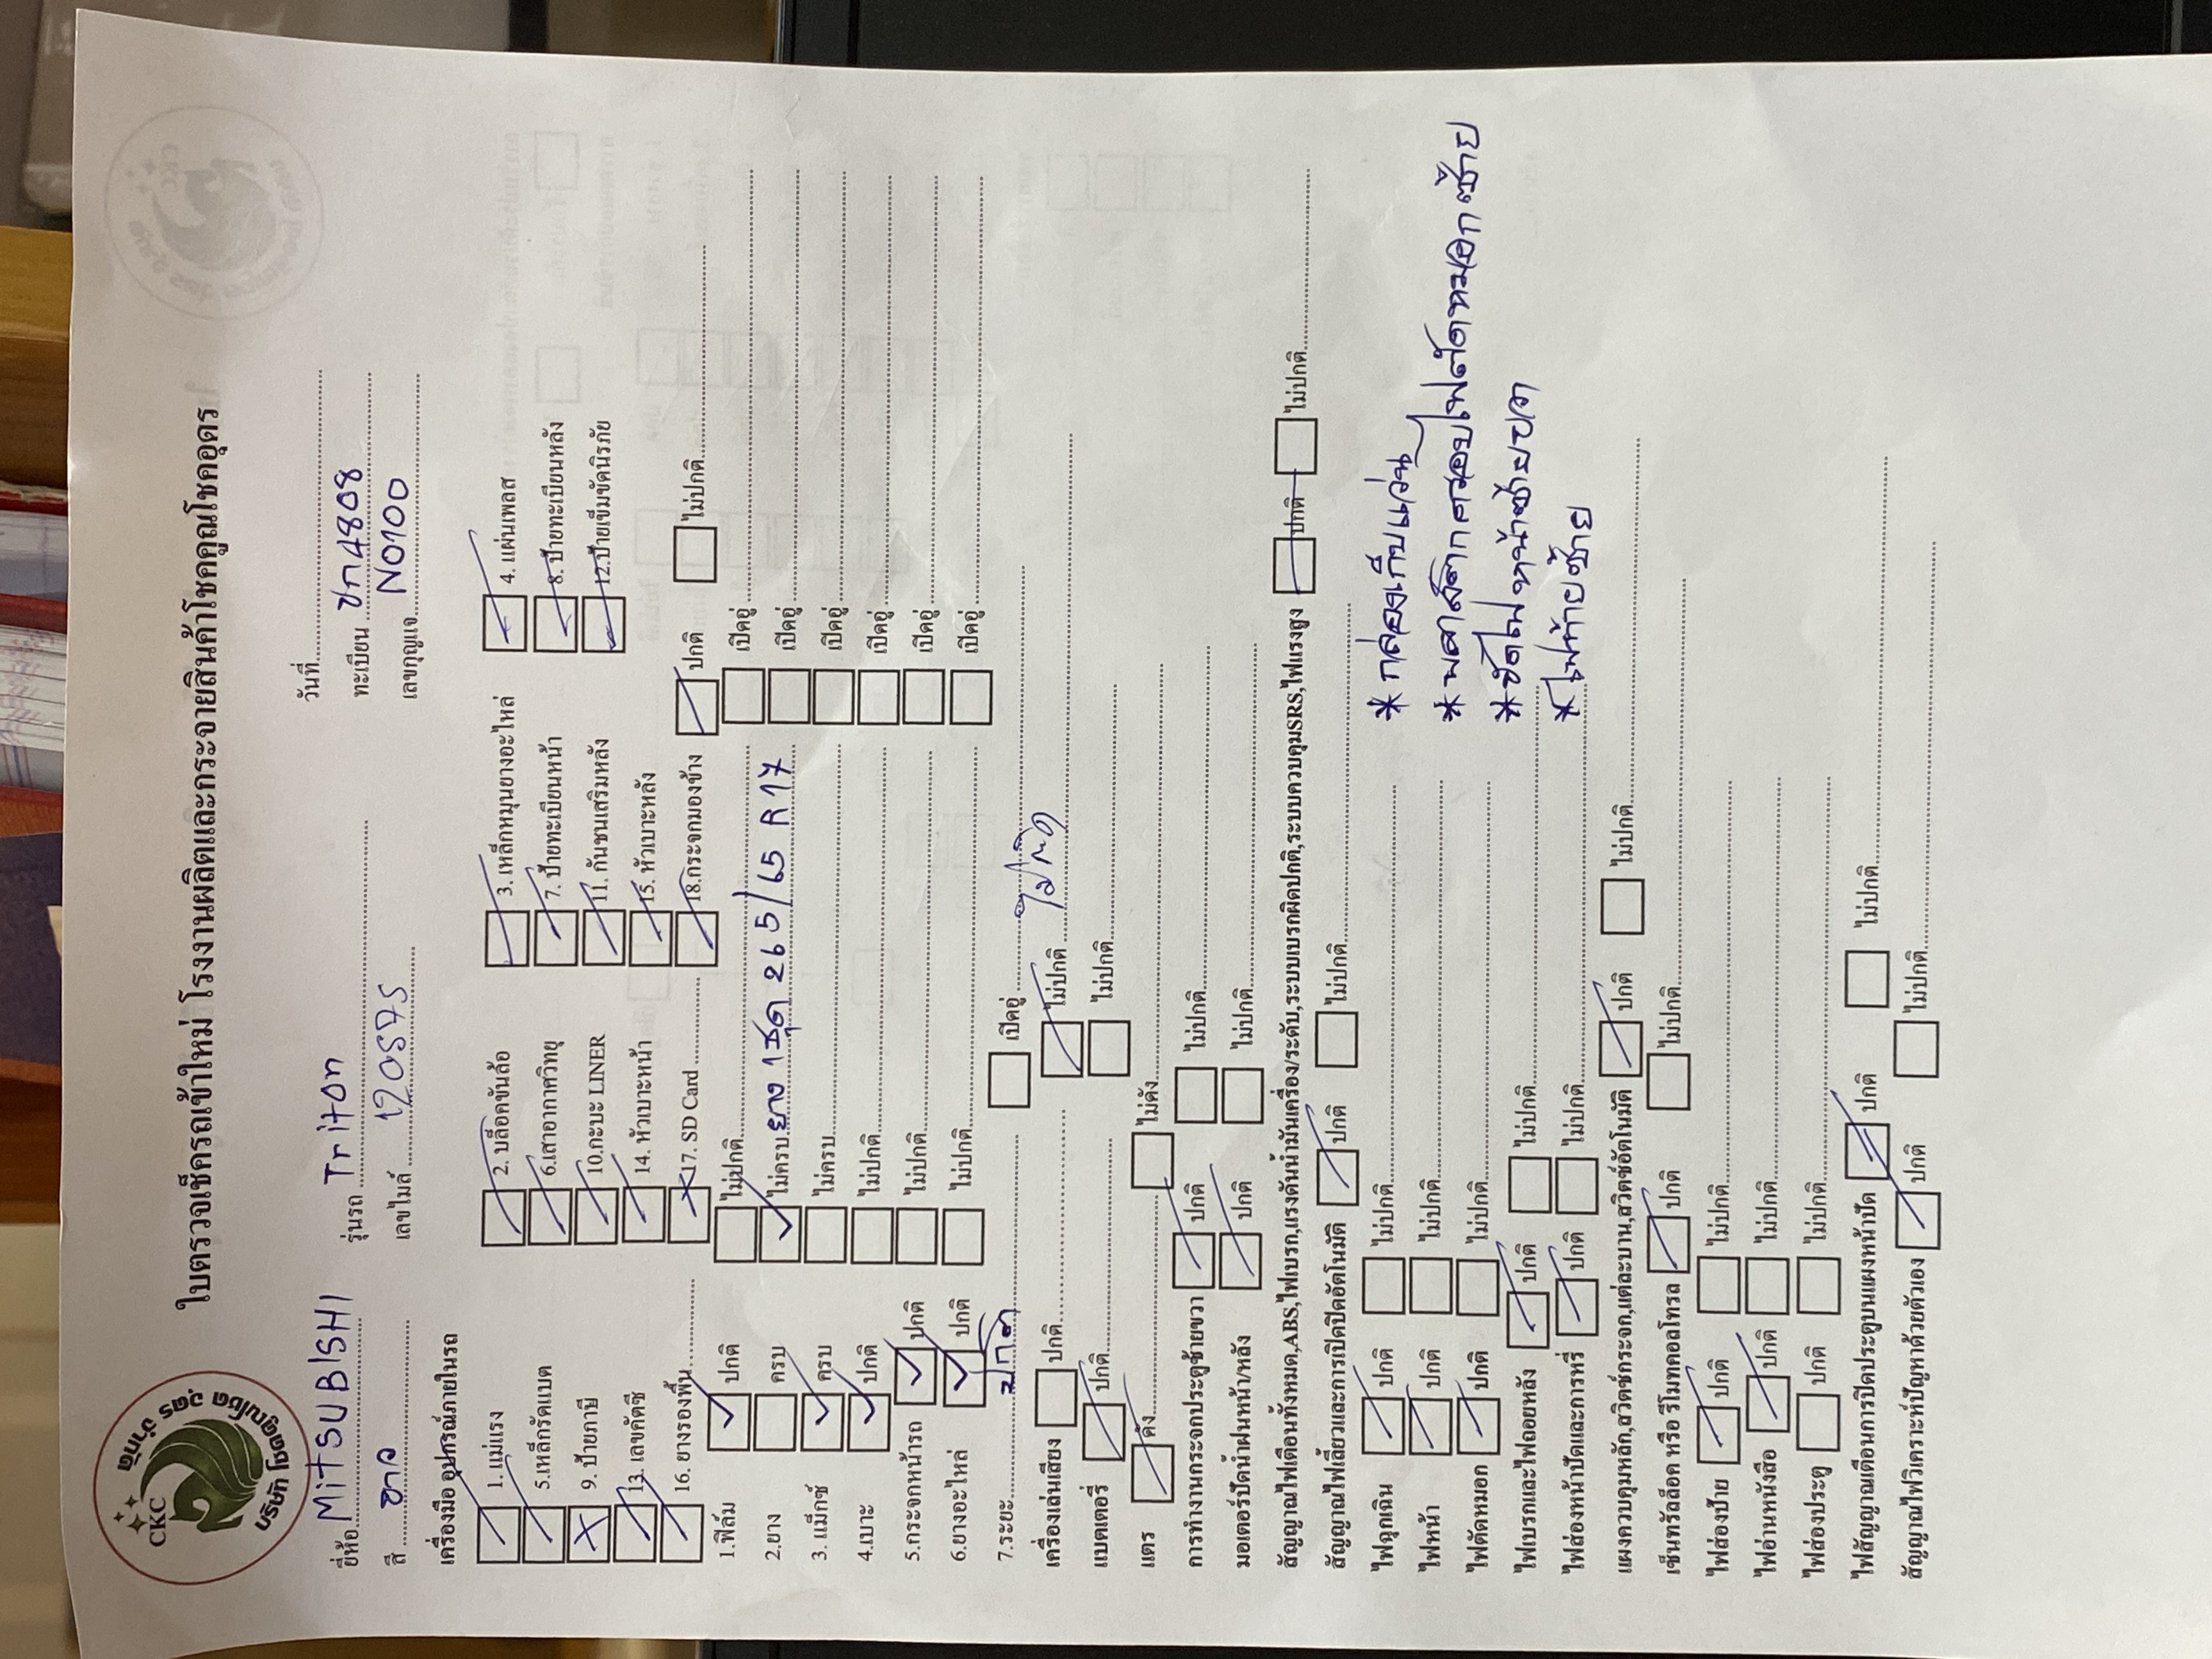 CKC
บริษัท โชคคูณโชค อุดร จำกัด
ใบตรวจเช็ครถเข้าใหม่ โรงงานผลิตและกระจายสินค้าโชคคูณโชคอุดร
วันที่
ยี่ห้อ MITSUBISHI รุ่นรถ Triton ทะเบียน ขก 4808
สี ขาว เลขไมล์ 120575 เลขกุญแจ N0100
เครื่องมือ อุปกรณ์ภายในรถ
1. แม่แรง 2. บล็อคขันล้อ 3. เหล็กหมุนยางอะไหล่ 4. แผ่นเพลส
5.เหล็กรัดแบต 6.เสาอากาศวิทยุ 7. ป้ายทะเบียนหน้า 8. ป้ายทะเบียนหลัง
9. ป้ายภาษี 10.กะบะ LINER 11. กันชนเสริมหลัง 12.ป้ายเข็มขัดนิรภัย
13. เลขคัตซี 14. หัวเบาะหน้า 15. หัวเบาะหลัง
16. ยางรองพื้น 17. SD Card 18.กระจกมองข้าง ปกติ ไม่ปกติ
1.ฟิล์ม ปกติ ไม่ปกติ เปิดอู่
2.ยาง ครบ ไม่ครบ ยาง 1ชุด 265/65 R17 เปิดอู่
3. แม็กซ์ ครบ ไม่ครบ เปิดอู่
4.เบาะ ปกติ ไม่ปกติ เปิดอู่
5.กระจกหน้ารถ ปกติ ไม่ปกติ เปิดอู่
6.ยางอะไหล่ ปกติ ไม่ปกติ เปิดอู่
7.ระยะ ปกติ เปิดอู่
เครื่องเล่นเสียง ปกติ ไม่ปกติ ไม่ติด
แบตเตอรี่ ปกติ ไม่ปกติ
แตร ดัง ไม่ดัง
การทำงานกระจกประตูซ้ายขวา ปกติ ไม่ปกติ
มอเตอร์ปัดน้ำฝนหน้า/หลัง ปกติ ไม่ปกติ
สัญญาณไฟเตือนทั้งหมด,ABS,ไฟเบรก,แรงดันน้ำมันเครื่อง/ระดับ,ระบบเบรกผิดปกติ,ระบบควบคุมSRS,ไฟแรงสูง ปกติ ไม่ปกติ
สัญญาณไฟเลี้ยวและการเปิดปิดอัตโนมัติ ปกติ ไม่ปกติ
ไฟฉุกเฉิน ปกติ ไม่ปกติ * กล่องเก็บแว่น
ไฟหน้า ปกติ ไม่ปกติ * พลาสติกครอบไฟตัดหมอกซ้าย
ไฟตัดหมอก ปกติ ไม่ปกติ * ขัดไฟหน้าซ้ายขวา
ไฟเบรกและไฟถอยหลัง ปกติ ไม่ปกติ * ไฟท้ายซ้าย
ไฟส่องหน้าปัดและการหรี่ ปกติ ไม่ปกติ
แผงควบคุมหลัก,สวิตช์กระจก,แต่ละบาน,สวิตช์อัตโนมัติ ปกติ ไม่ปกติ
เซ็นทรัลล็อค หรือ รีโมทคอลโทรล ปกติ ไม่ปกติ
ไฟส่องป้าย ปกติ ไม่ปกติ
ไฟอ่านหนังสือ ปกติ ไม่ปกติ
ไฟส่องประตู ปกติ ไม่ปกติ
ไฟสัญญาณเตือนการปิดประตูบนแผงหน้าปัด ปกติ ไม่ปกติ
สัญญาณไฟวิเคราะห์ปัญหาด้วยตัวเอง ปกติ ไม่ปกติ